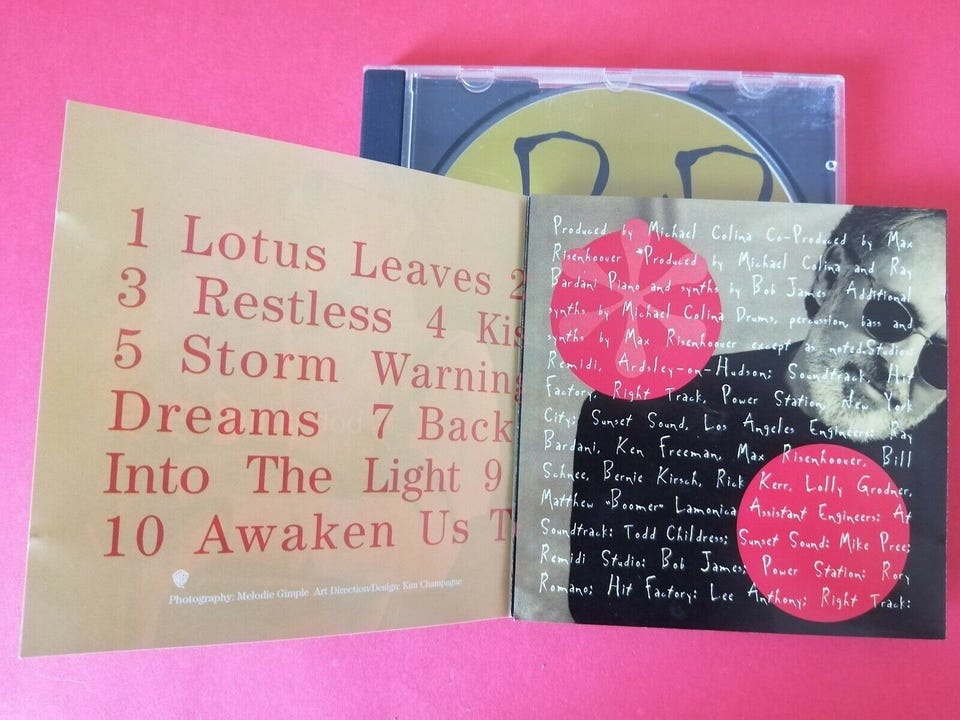 1 Lotus Leaves 2
3 Restless 4 Kis
5 Storm Warning
Dreams 7 Back
Into The Light 9
10 Awaken Us T
Photography: Melodie Gimple Art Direction/Design: Kim Champagne
Produced by Michael Colina Co-Produced by Max
Risenhoover *Produced by Michael Colina and Ray
Bardani Piano and synths by Bob James Additional
synths by Michael Colina Drums, percussion, bass and
synths by Max Risenhoover except as noted. Studios:
Remidi, Ardsley-on-Hudson; Soundtrack, Hit
Factory, Right Track, Power Station, New York
City; Sunset Sound, Los Angeles Engineers: Ray
Bardani, Ken Freeman, Max Risenhoover, Bill
Schnee, Bernie Kirsch, Rick Kerr, Lolly Grodner,
Matthew "Boomer" Lamonica Assistant Engineers: At
Soundtrack: Todd Childress; Sunset Sound: Mike Pree;
Remidi Studio: Bob James; Power Station: Rory
Romano; Hit Factory: Lee Anthony; Right Track: